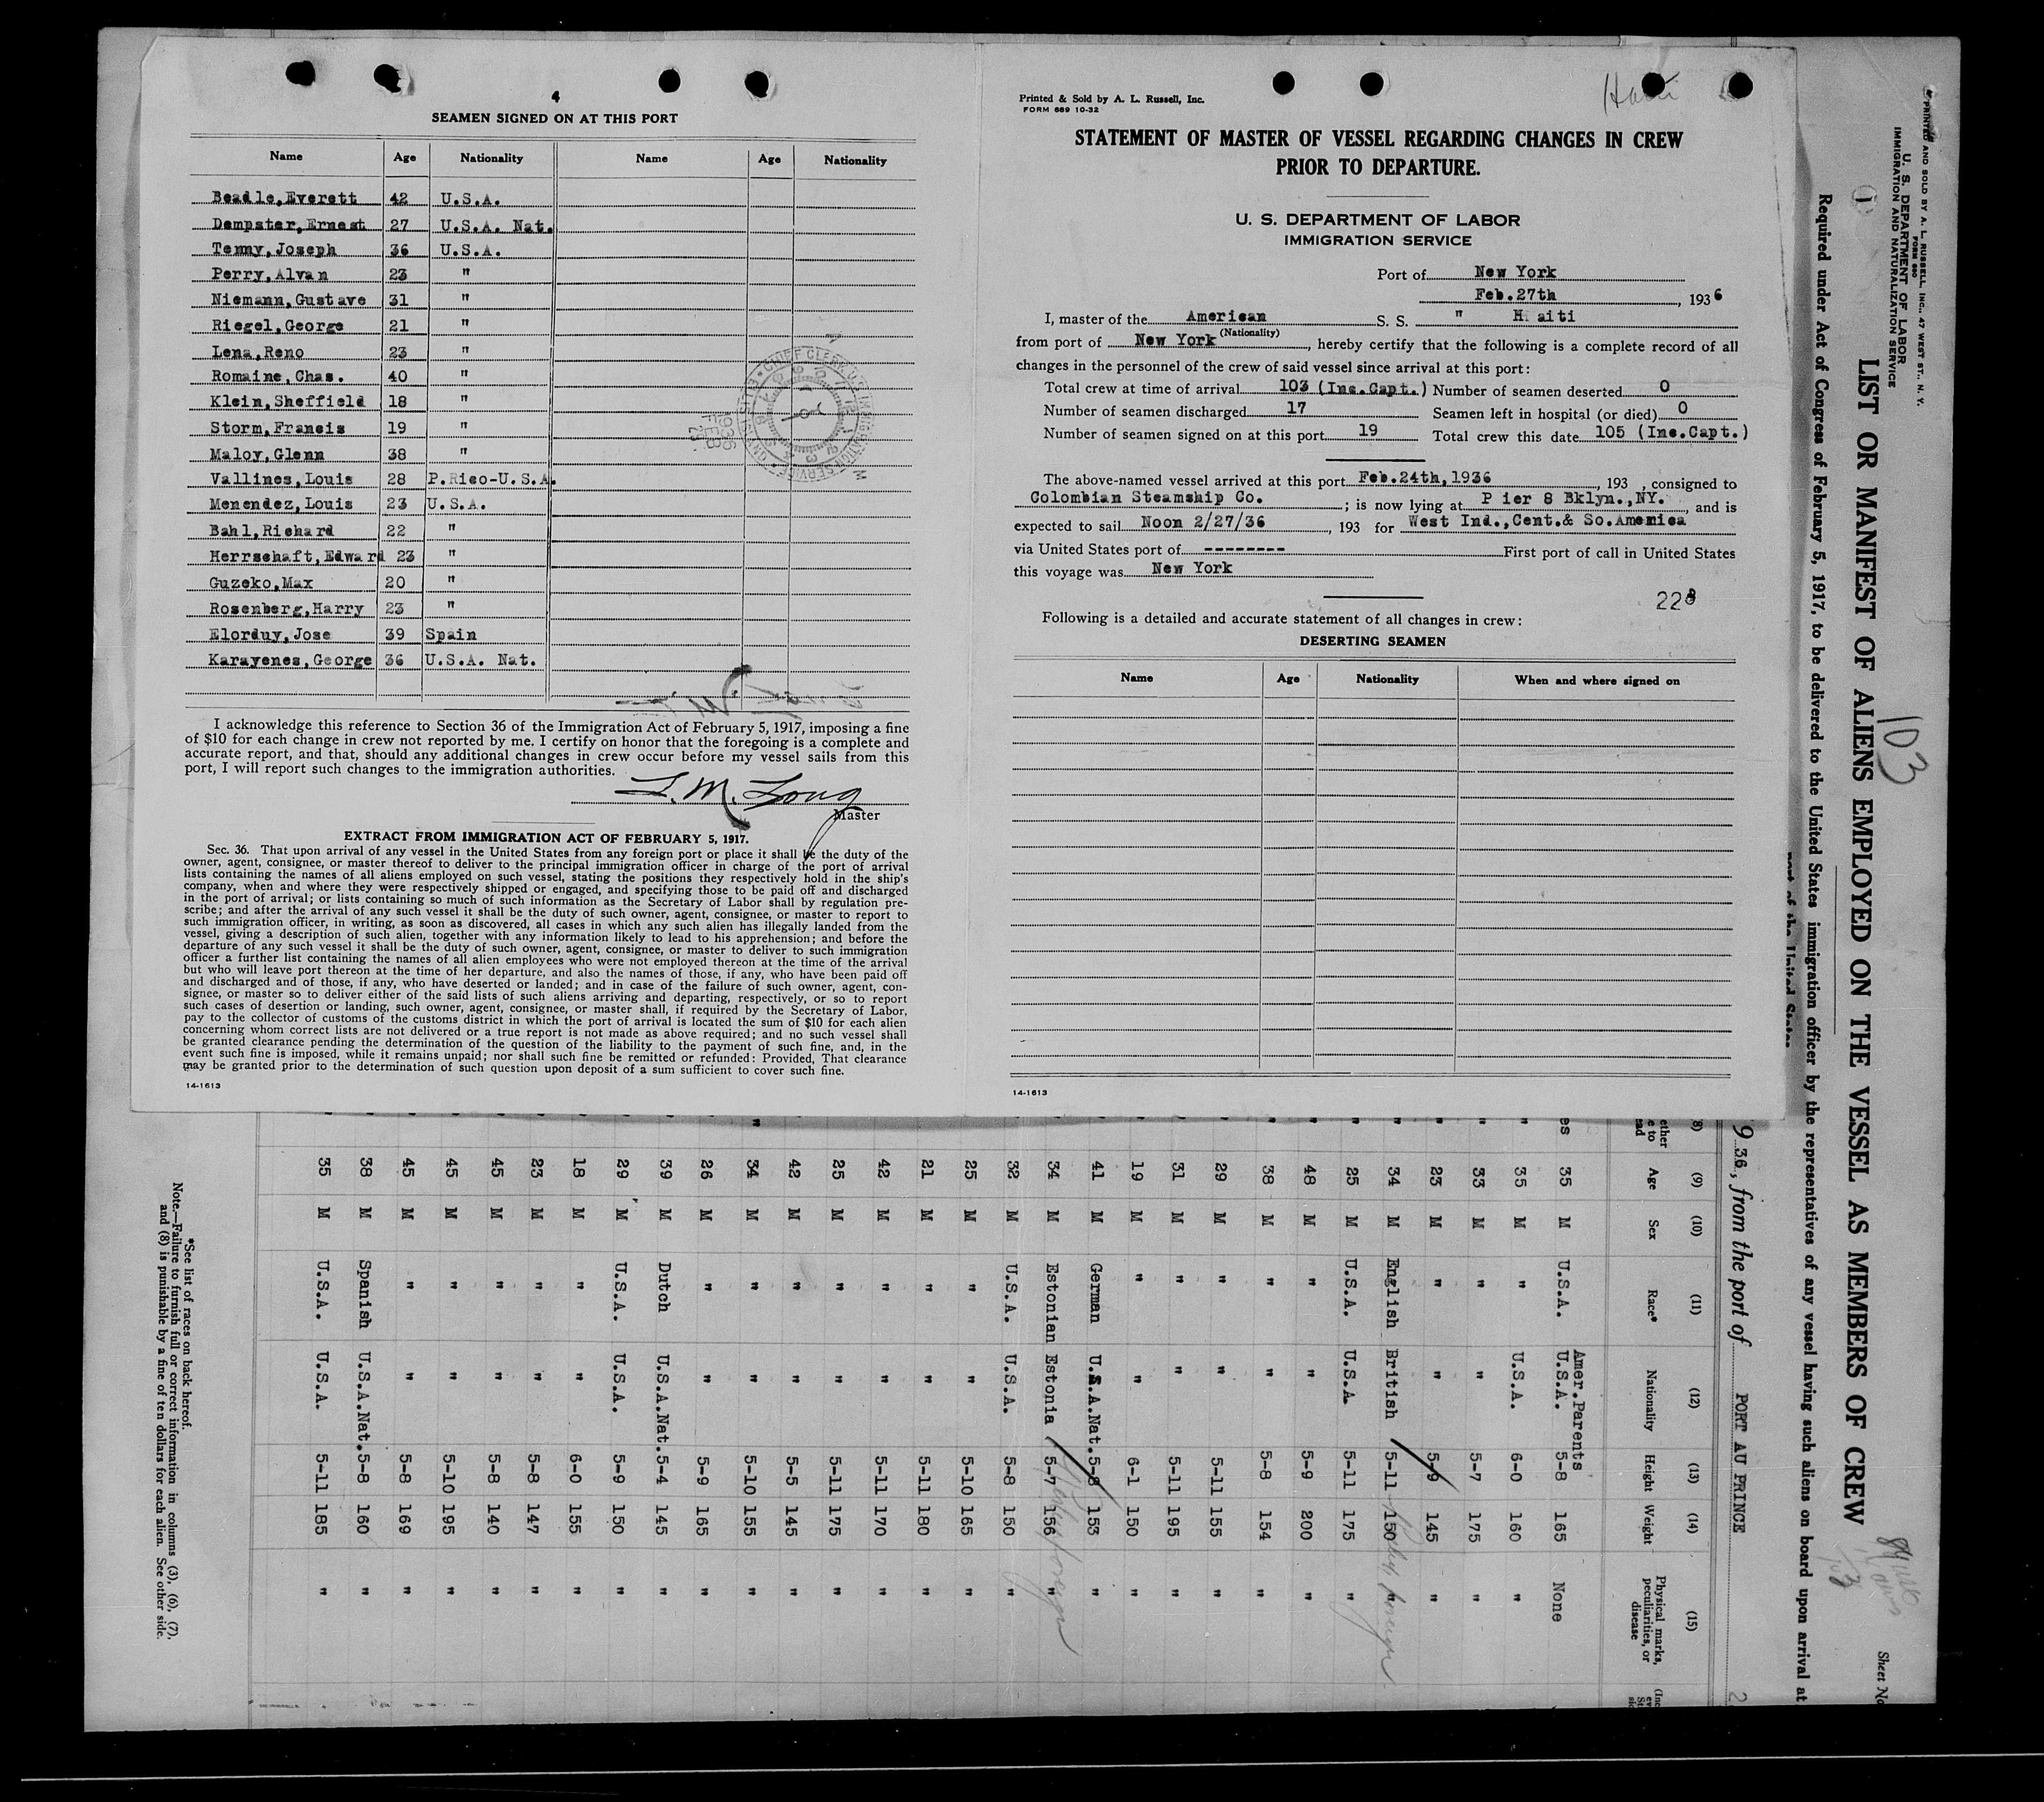 4
SEAMEN SIGNED ON AT THIS PORT
Name Age Nationality Name Age Nationality
Beadle,Everett 42 U.S.A.
Dempster,Ernest 27 U.S.A. Nat.
Temmy,Joseph 36 U.S.A.
Perry,Alvan 23 "
Niemann,Gustave 31 "
Riegel,George 21 "
Lena,Reno 23 "
Romaine,Chas. 40 "
Klein,Sheffield 18 "
Storm,Francis 19 "
Maloy,Glenn 38 "
Vallines,Louis 28 P.Rico-U.S.A.
Menendez,Louis 23 U.S.A.
Bahl,Richard 22 "
Herrschaft,Edward 23 "
Guzeko,Max 20 "
Rosenberg,Harry 23 "
Elorduy,Jose 39 Spain
Karayenes,George 36 U.S.A. Nat.
I acknowledge this reference to Section 36 of the Immigration Act of February 5, 1917, imposing a fine
of $10 for each change in crew not reported by me. I certify on honor that the foregoing is a complete and
accurate report, and that, should any additional changes in crew occur before my vessel sails from this
port, I will report such changes to the immigration authorities.
L.M. Long
Master
EXTRACT FROM IMMIGRATION ACT OF FEBRUARY 5, 1917.
Sec. 36. That upon arrival of any vessel in the United States from any foreign port or place it shall be the duty of the
owner, agent, consignee, or master thereof to deliver to the principal immigration officer in charge of the port of arrival
lists containing the names of all aliens employed on such vessel, stating the positions they respectively hold in the ship's
company, when and where they were respectively shipped or engaged, and specifying those to be paid off and discharged
in the port of arrival; or lists containing so much of such information as the Secretary of Labor shall by regulation pre-
scribe; and after the arrival of any such vessel it shall be the duty of such owner, agent, consignee, or master to report to
such immigration officer, in writing, as soon as discovered, all cases in which any such alien has illegally landed from the
vessel, giving a description of such alien, together with any information likely to lead to his apprehension; and before the
departure of any such vessel it shall be the duty of such owner, agent, consignee, or master to deliver to such immigration
officer a further list containing the names of all alien employees who were not employed thereon at the time of the arrival
but who will leave port thereon at the time of her departure, and also the names of those, if any, who have been paid off
and discharged and of those, if any, who have deserted or landed; and in case of the failure of such owner, agent, con-
signee, or master so to deliver either of the said lists of such aliens arriving and departing, respectively, or so to report
such cases of desertion or landing, such owner, agent, consignee, or master shall, if required by the Secretary of Labor,
pay to the collector of customs of the customs district in which the port of arrival is located the sum of $10 for each alien
concerning whom correct lists are not delivered or a true report is not made as above required; and no such vessel shall
be granted clearance pending the determination of the question of the liability to the payment of such fine, and, in the
event such fine is imposed, while it remains unpaid; nor shall such fine be remitted or refunded: Provided, That clearance
may be granted prior to the determination of such question upon deposit of a sum sufficient to cover such fine.
14-1613
Haiti
Printed & Sold by A. L. Russell, Inc.
FORM 689 10-32
STATEMENT OF MASTER OF VESSEL REGARDING CHANGES IN CREW
PRIOR TO DEPARTURE.
U. S. DEPARTMENT OF LABOR
IMMIGRATION SERVICE
Port of New York
Feb.27th, 1936
I, master of the American S. S. " Haiti
(Nationality)
from port of New York, hereby certify that the following is a complete record of all
changes in the personnel of the crew of said vessel since arrival at this port:
Total crew at time of arrival 103 (Inc.Capt.) Number of seamen deserted 0
Number of seamen discharged 17 Seamen left in hospital (or died) 0
Number of seamen signed on at this port 19 Total crew this date 105 (Inc.Capt.)
The above-named vessel arrived at this port Feb.24th,1936, 193 , consigned to
Colombian Steamship Co.; is now lying at P ier 8 Bklyn.,NY., and is
expected to sail Noon 2/27/36, 193 for West Ind.,Cent.& So.America
via United States port of -------- First port of call in United States
this voyage was New York
228
Following is a detailed and accurate statement of all changes in crew:
DESERTING SEAMEN
Name Age Nationality When and where signed on
14-1613
PRINTED AND SOLD BY A. L. RUSSELL, INC., 47 WEST ST., N. Y.
FORM 680
U. S. DEPARTMENT OF LABOR
IMMIGRATION AND NATURALIZATION SERVICE
103
Sheet No
LIST OR MANIFEST OF ALIENS EMPLOYED ON THE VESSEL AS MEMBERS OF CREW
Required under Act of Congress of February 5, 1917, to be delivered to the United States immigration officer by the representatives of any vessel having such aliens on board upon arrival at
port of the United States
936, from the port of PORT AU PRINCE 2
(8) (9) (10) (11) (12) (13) (14) (15)
Age Sex Race* Nationality Height Weight Physical marks, peculiarities, or disease
Amer.Parents
es 35 M U.S.A. U.S.A. 5-8 165 None
" 35 M " U.S.A. 6-0 160 "
" 33 M " " 5-7 175 "
" 23 M " " 5-9 145 "
" 34 M English British 5-11 150 "
" 25 M U.S.A. U.S.A. 5-11 175 "
" 48 M " " 5-9 200 "
" 38 M " " 5-8 154 "
" 29 M " " 5-11 155 "
" 31 M " " 5-11 195 "
" 19 M " " 6-1 150 "
" 41 M German U.S.A.Nat. 5-8 153 "
" 34 M Estonian Estonia 5-7 156 "
" 32 M U.S.A. U.S.A. 5-8 150 "
25 M " " 5-10 165 "
21 M " " 5-11 180 "
42 M " " 5-11 170 "
25 M " " 5-11 175 "
42 M " " 5-5 145 "
" 34 M " " 5-10 155 "
26 M " " 5-9 165 "
39 M Dutch U.S.A.Nat. 5-4 145 "
29 M U.S.A. U.S.A. 5-9 150 "
18 M " " 6-0 155 "
23 M " " 5-8 147 "
45 M " " 5-8 140 "
45 M " " 5-10 195 "
45 M " " 5-8 169 "
38 M Spanish U.S.A.Nat. 5-8 160 "
35 M U.S.A. U.S.A. 5-11 185 "
*See list of races on back hereof.
Note.—Failure to furnish full or correct information in columns (3), (6), (7),
and (8) is punishable by a fine of ten dollars for each alien. See other side.